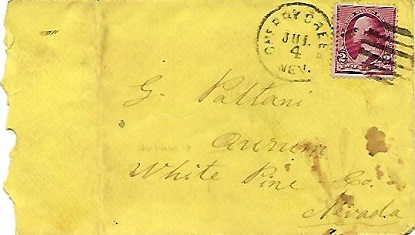 CHERRY CREEK
JUL
4
NEV.
2 2
G. Pattani
Aurum
White Pine Co.
Nevada